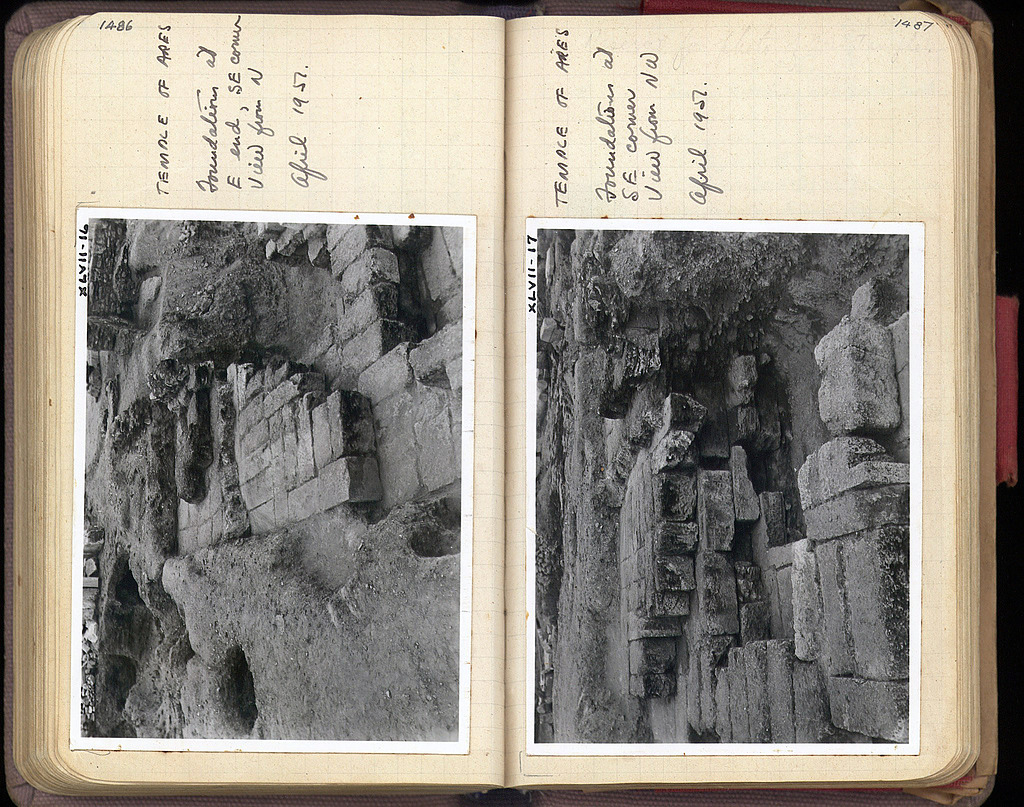 1486
TEMPLE OF ARES
Foundations at
E end, SE corner
View from N
April 1951.
XLVII-16
1487
TEMPLE OF ARES
Foundations at
SE corner
View from NW
April 1951.
XLVII-17